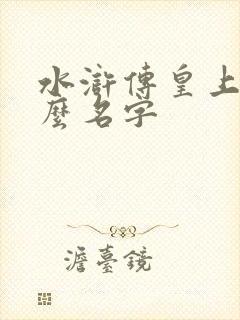 水滸傳皇上
麼名字
澹臺鏡